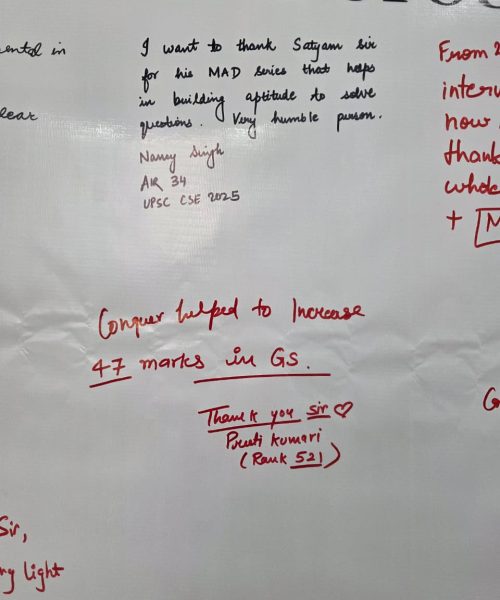 ented in
lear
I want to thank Satyam sir
for his MAD series that helps
in building aptitude to solve
questions. Very humble person.
Nancy Singh
AIR 34
UPSC CSE 2025
From 2
interv
now
thank
whole
+ M
Conquer helped to Increase
47 marks in GS.
Thank you sir ♡
Preeti Kumari
(Rank 521)
Sir,
my light